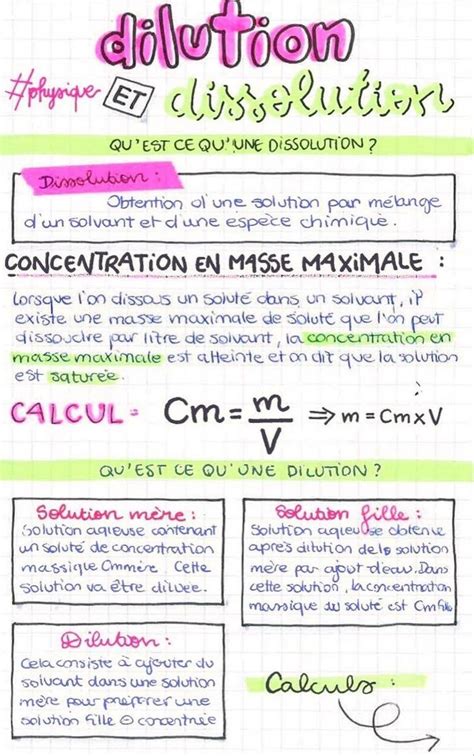 dilution
#physique ET dissolution
QU'EST CE QU'UNE DISSOLUTION ?
Dissolution :
Obtention d'une solution par mélange
d'un solvant et d'une espèce chimique.
CONCENTRATION EN MASSE MAXIMALE :
Lorsque l'on dissous un soluté dans un solvant, il
existe une masse maximale de soluté que l'on peut
dissoudre par litre de solvant, la concentration en
masse maximale est atteinte et on dit que la solution
est saturée.
CALCUL = Cm = m/V ⇒ m = Cm x V
QU'EST CE QU'UNE DILUTION ?
Solution mère :
Solution aqueuse contenant
un soluté de concentration
massique Cmmère. Cette
solution va être diluée.
Solution fille :
Solution aqueuse obtenue
après dilution de la solution
mère par ajout d'eau. Dans
cette solution, la concentration
massique du soluté est Cmfille
Dilution :
Cela consiste à ajouter du
solvant dans une solution
mère pour préparer une
solution fille ⊖ concentrée
Calculs :